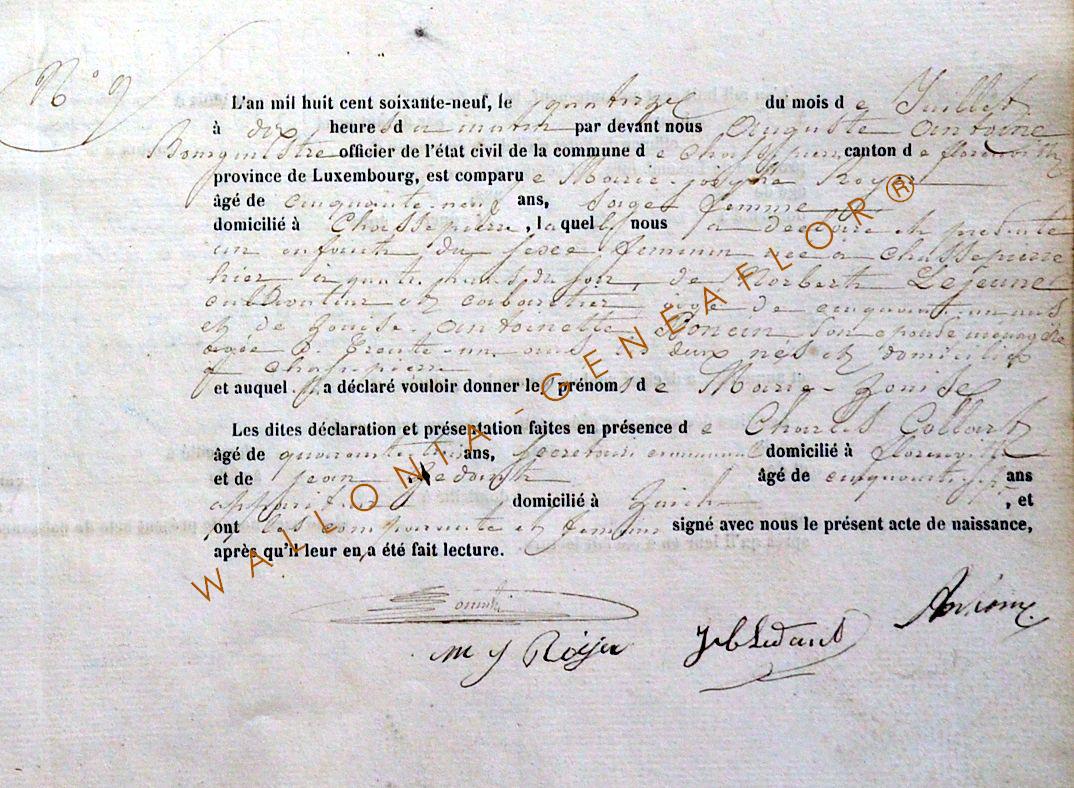 N° 7
L'an mil huit cent soixante-neuf, le quatorze du mois de Juillet
à dix heures du matin par devant nous Auguste Antoine
Bourgmestre officier de l'état civil de la commune de Chassepierre canton de florenville
province de Luxembourg, est comparue Marie-josephe Royer
âgé de cinquante-neuf ans, sage femme
domicilié à Chassepierre, laquelle nous a déclaré et présenté
un enfant du sexe féminin née à Chassepierre
hier à quatre heures du soir, de Norbert Lejeune
cultivateur et cabaretier âgé de cinquante-un ans
et de Louise Antoinette Poncin son épouse ménagère
âgée de trente-un ans deux nés et domiciliés
à Chassepierre
et auquel a déclaré vouloir donner les prénoms de Marie-Louise
Les dites déclaration et présentation faites en présence de Charles Collart
âgé de quarante trois ans, secrétaire communal domicilié à florenville
et de jean Ledant âgé de cinquante ans
appariteur domicilié à , et
ont les comparante et témoins signé avec nous le présent acte de naissance,
après qu'il leur en a été fait lecture.
Antoine
m j Roïyer
J b Ledant
WALLONIA-GENEAFLOR®